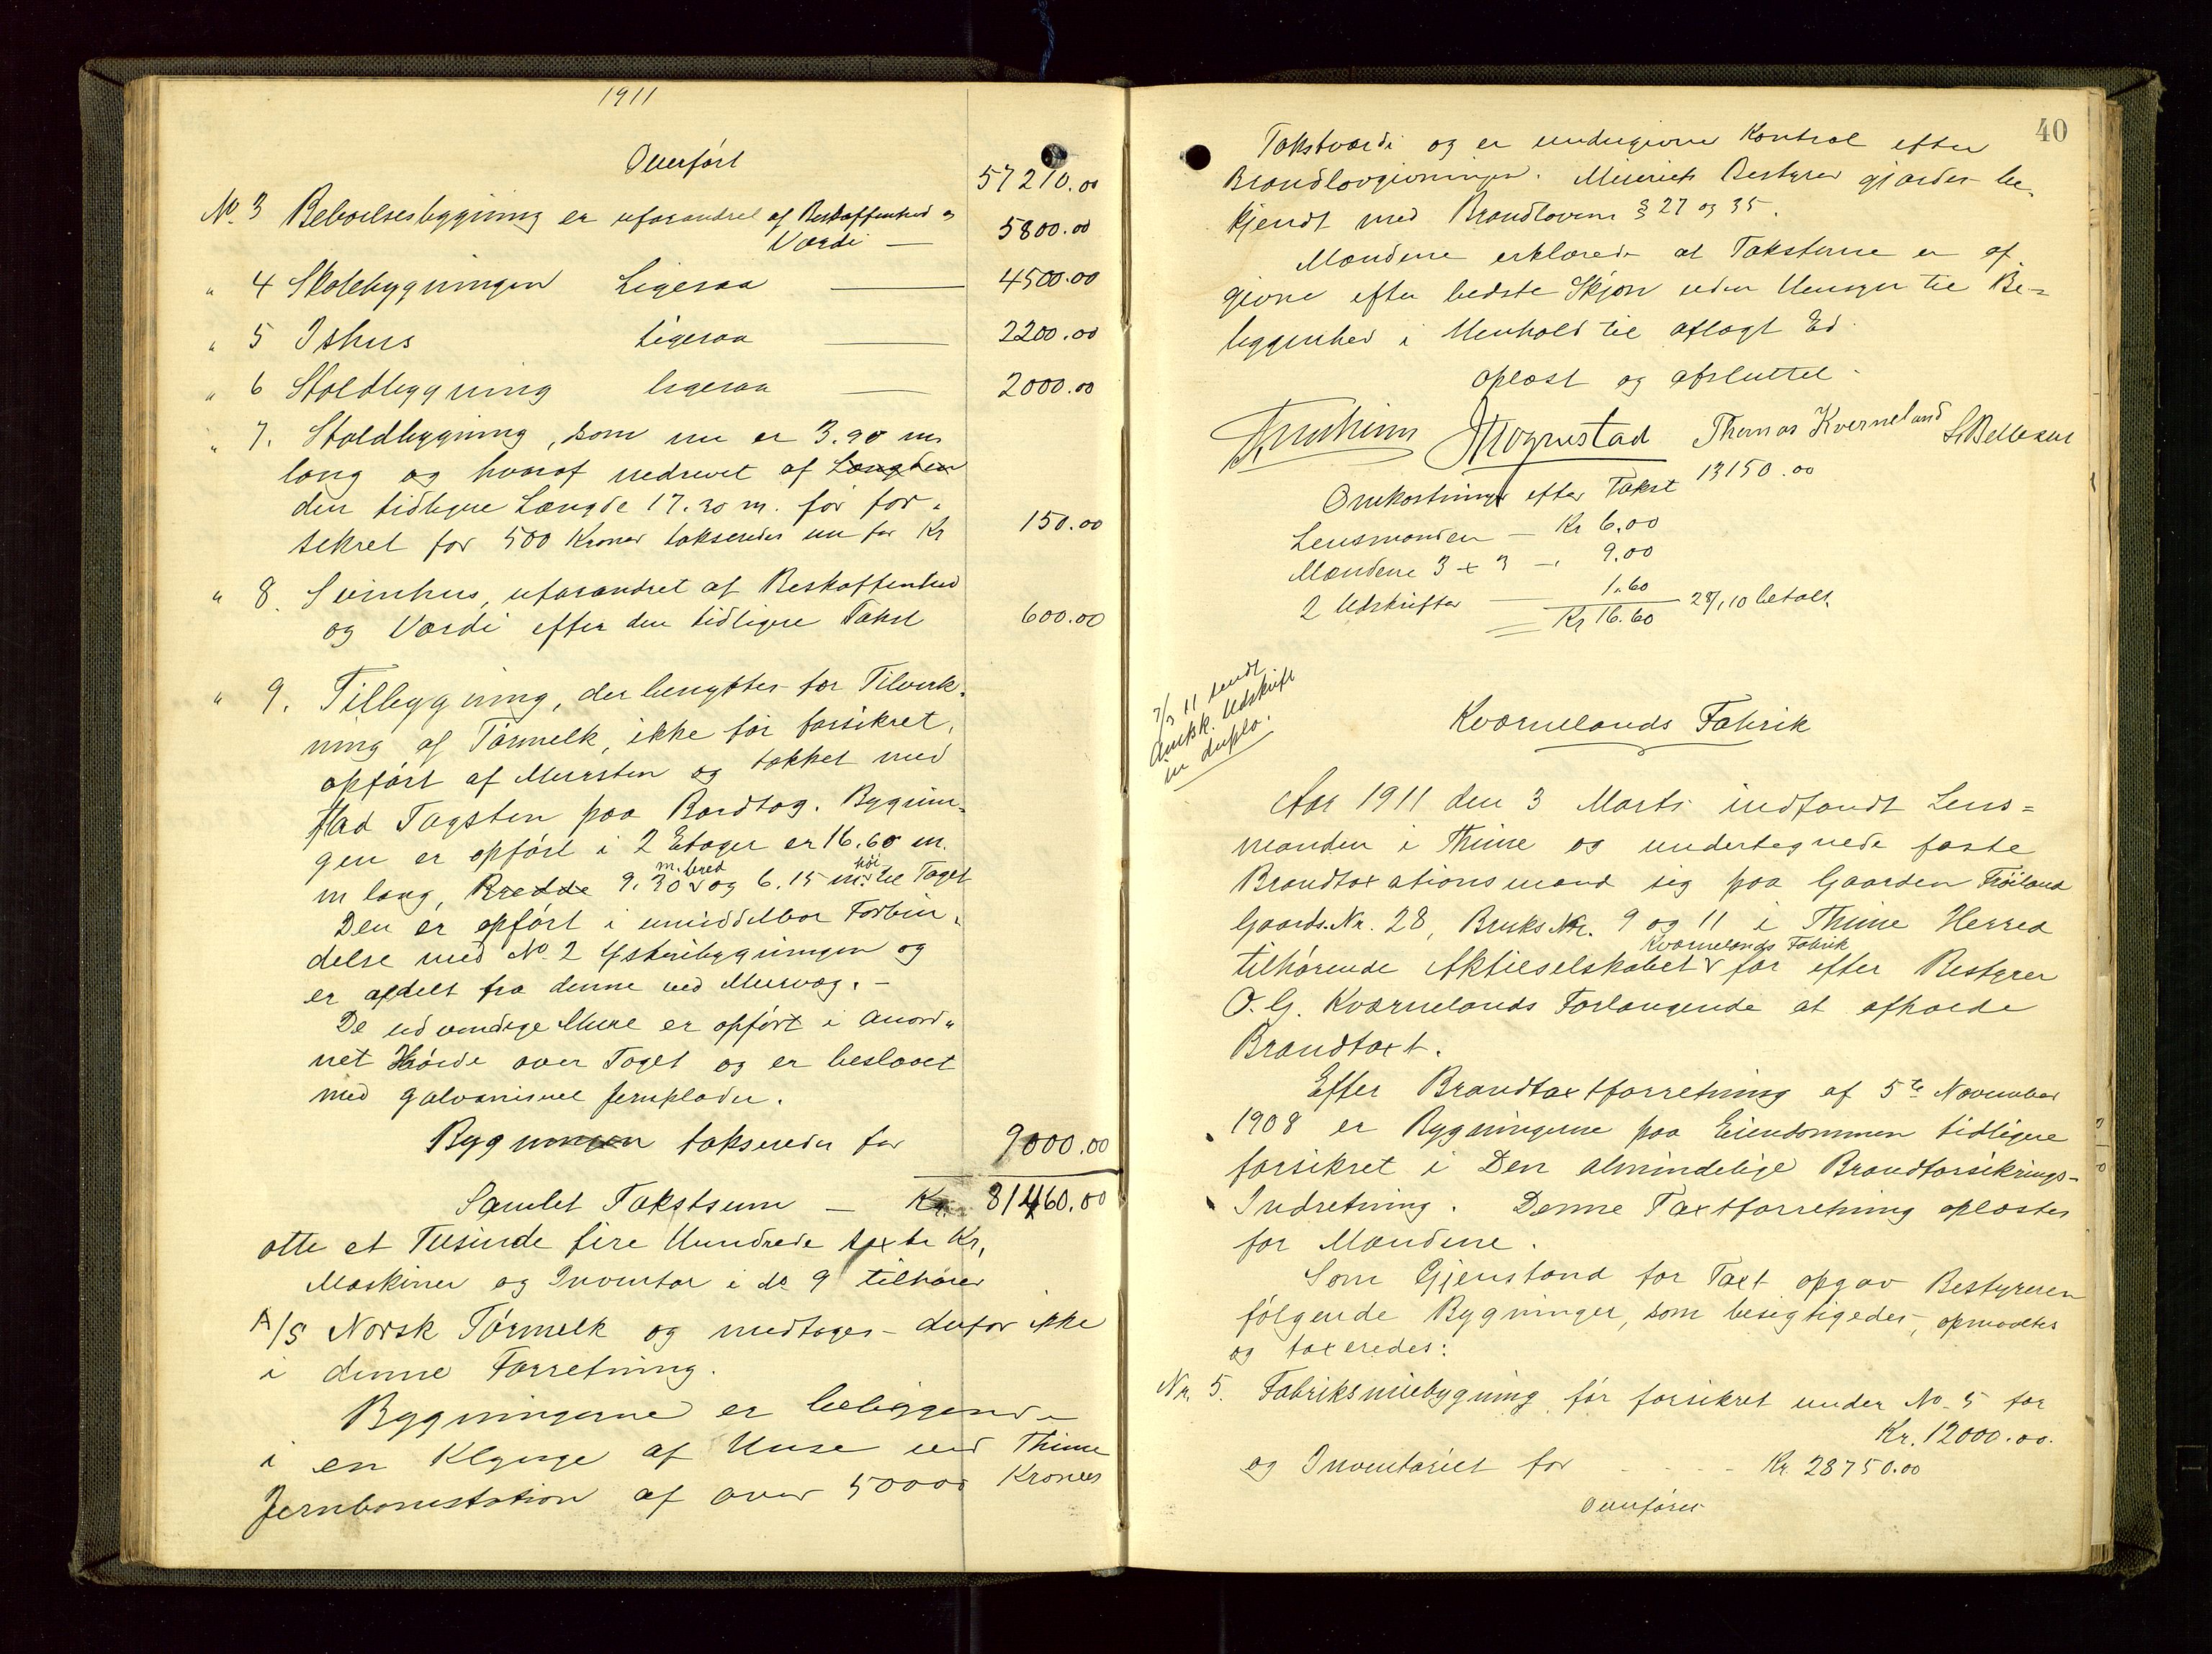 1911
Overført 57210.00
No. 3 Beboelsesbygning er uforandret af Beskaffenhed og
Værdi — 5800.00
„ 4 Skolebygningen Ligesaa — 4500.00
„ 5 Ishus Ligesaa — 2200.00
„ 6 Staldbygning ligesaa — 2000.00
„ 7. Staldbygning, som nu er 3.90 m
lang og hvoraf nedrevet af Længden
den tidligere Længde 17.30 m. før for„
sikret for 500 Kroner takseredes nu for Kr 150.00
„ 8. Svinhus, uforandret af Beskaffenhed
og Værdi efter den tidligere Takst 600.00
„ 9. Tilbygning, der benyttes for Tilvirk„
ning af Tørmelk, ikke før forsikret,
opført af Mursten og tækket med
flad Tagsten paa Bordtag. Bygnin„
gen er opført i 2 Etager er 16.60 m.
m.bred høi
m lang, Bredde 9.30 v og 6.15 m. v til Taget
Den er opført i umiddelbar Forbin„
delse med No 2 Ysteribygningen og
er afdelt fra denne ved Murvæg. –
De udvendige Mure er opført i anord„
net Høide over Taget og er beslaaet
med galvaniseret Jernplader.
Bygningen takseredes for 9000.00
Samlet Takstsum — Kr. 81460.00
otte et Tusinde fire Hundrede sexti Kr,
Maskiner og Inventar i No 9 tilhører
A/S Norsk Tørmelk og medtages derfor ikke
i denne Forretning.
Bygningerne er beliggende
i en Klynge af Huse ved Thime
Jernbanestation af over 50000 Kroners
40
Takstværdi og er undergivne Kontrol efter
Brandlovgivningen. Meieriets Bestyrer gjordes be„
kjendt med Brandlovens § 27 og 35.
Mændene erklærede at Taksterne er af„
givne efter bedste Skjøn uden Hensyn til Be=
liggenhed i Henhold til aflagt Ed.
Oplæst og afsluttet.
Mognstad Thomas Kverneland
Omkostninger efter Takst 13150.00
Lensmanden — Kr 6.00
Mændene 3 x 3 — „ 9.00
2 Udskrifter — 1.60
Kr 16.60 betalt.
7/3 11 sendt
Amtsk. Udskrift
in duplo.
Kværnelands Fabrik
Aar 1911 den 3 Marts indfandt Lens=
manden i Thime og undertegnede faste
Brandtaxationsmænd sig paa Gaarden Frøiland
Gaards.Nr. 28, Bruks Nr. 9 og 11 i Thime Herred
Kværnelands Fabrik
tilhørende Aktieselskabet v for efter Bestyrer
O. G. Kværnelands Forlangende at afholde
Brandtaxt.
Efter Brandtaxtforretning af 5te November
1908 er Bygningerne paa Eiendommen tidligere
forsikret i Den almindelige Brandforsikrings-
Indretning. Denne Taxtforretning oplæstes
for Mændene.
Som Gjenstand for Taxt opgav Bestyreren
følgende Bygninger, som besigtigedes, opmaaltes
og taxeredes:
Nr. 5. Fabriksmiebygning før forsikret under No 5 for
Kr. 12000.00.
og Inventariet for - - - Kr. 28750.00
Overføres